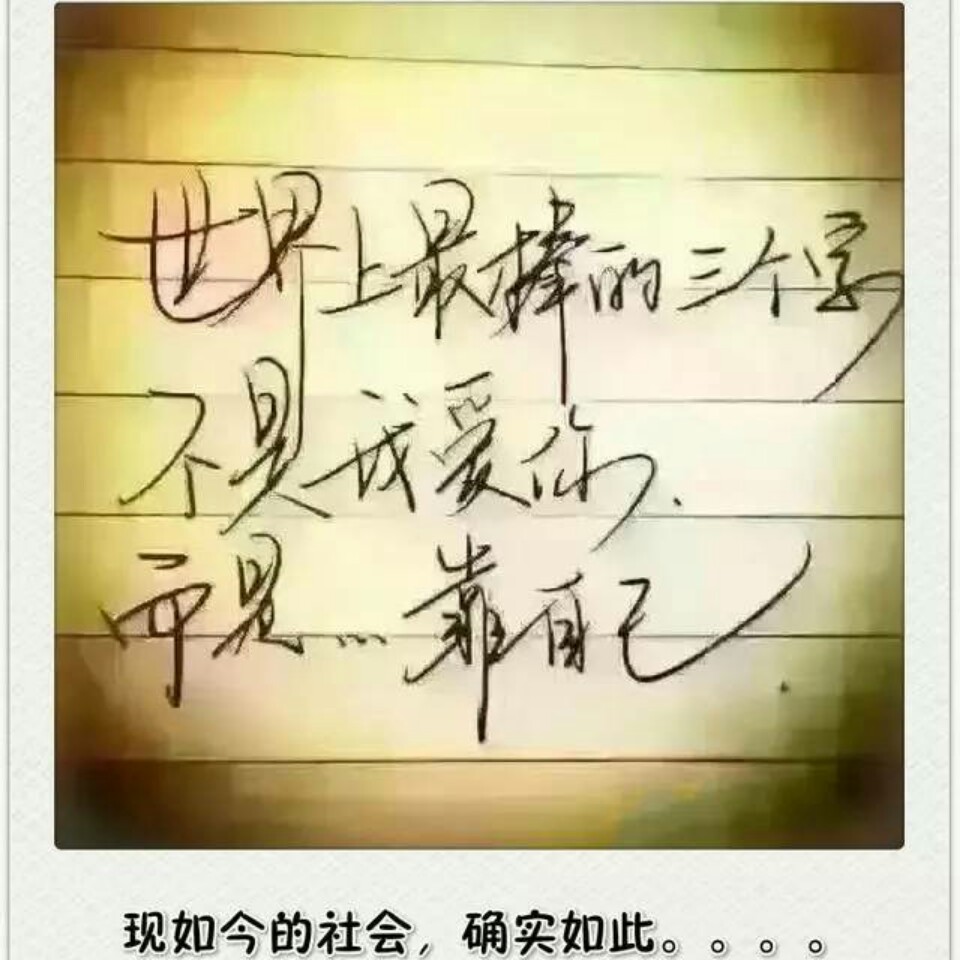 世界上最棒的三个字
不是我爱你.
而是...靠自己.
现如今的社会，确实如此。。。。